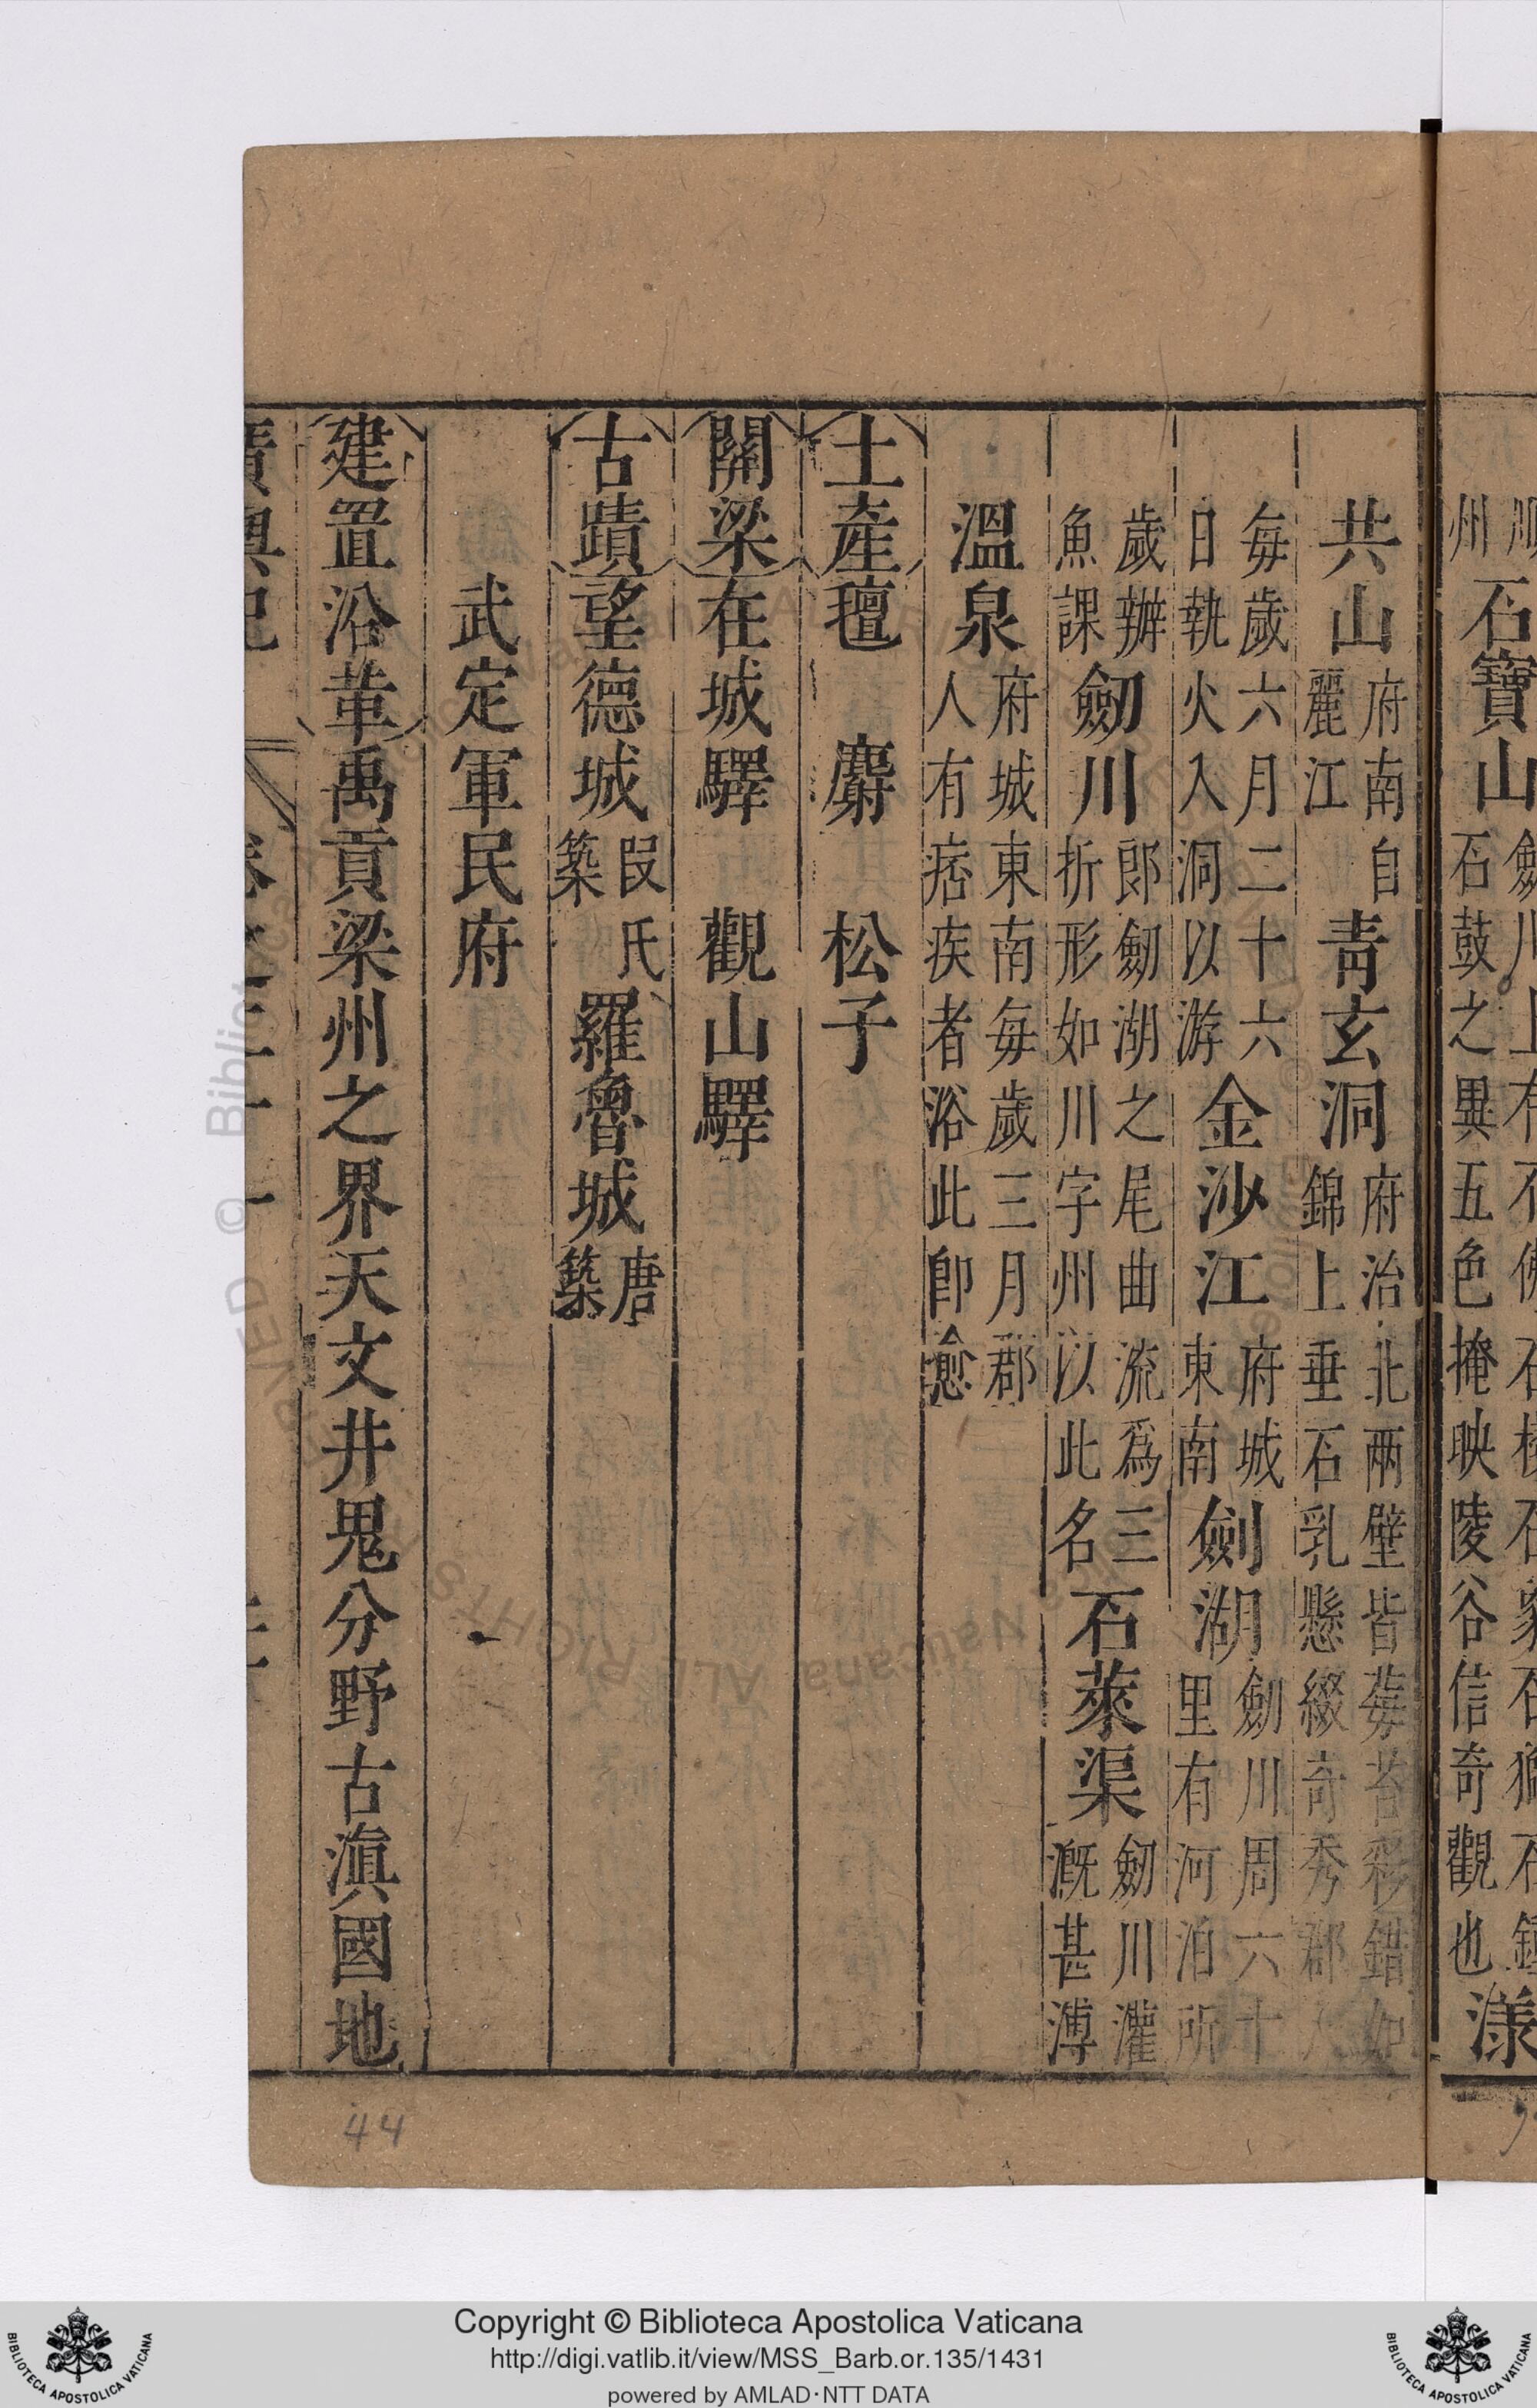 州石寶山石鼓之異五色掩映陵谷信奇觀也漾
共山府南自麗江青玄洞府治北兩壁皆莓苔彩錯如錦上垂石乳懸綴奇秀郡人
每歲六月二十六日執火入洞以游金沙江府城東南劍湖劒川周六十里有河泊所
歲辦魚課劒川郎劒湖之尾曲流爲三折形如川字州以此名石萊渠劒川灌溉甚溥
溫泉府城東南每歲三月郡人有痞疾者浴此卽愈
土產氊 麝 松子
關梁在城驛 觀山驛
古蹟望德城段氏築羅魯城唐築
武定軍民府
建置沿革禹貢梁州之界天文井鬼分野古滇國地
廣輿記 卷之二十一
Copyright © Biblioteca Apostolica Vaticana
http://digi.vatlib.it/view/MSS_Barb.or.135/1431
powered by AMLAD·NTT DATA
BIBLIOTECA APOSTOLICA VATICANA
BIBLIOTECA APOSTOLICA VATICANA
44